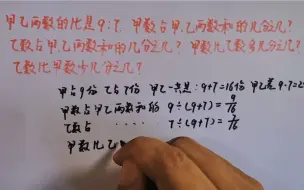 甲乙两数的比是9:7, 甲数占甲乙两数和的几分之几?
乙数占甲乙两数和的几分之几? 甲数比乙数多几分之几?
乙数比甲数少几分之几?
甲占9份 乙占7份 甲乙一共是: 9+7=16份 甲乙差 9-7=2
甲数占甲乙两数和的 9÷(9+7)=9/16
乙数占 ...... 7÷(9+7)=7/16
甲数比乙